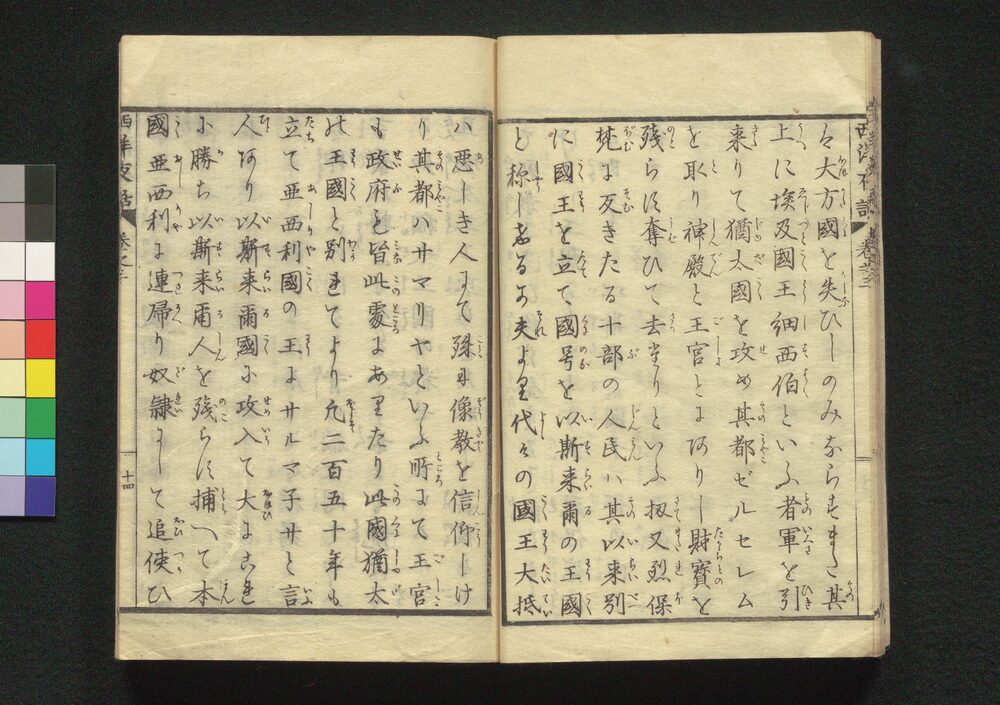 々大方國を失ひしのみならすまた其
上に埃及國王細西伯といふ者軍を引
来りて猶太國を攻め其都ゼルセレム
を取り神殿と王宮とにありし財寶を
残らす奪ひて去りたりといふ扨又烈保
梵に反きたる十部の人民ハ其以来別
に國王を立て國号を以斯来爾の王國
と称しける夫より代々の國王大抵
ハ悪しき人にて殊に像教を信仰しけ
り其都ハサマリヤといふ所にて王宮
も政府も皆此處にありたり此國猶太
の王國と別れてより凡二百五十年も
立て亜西利國の王にサルマ子サと言
人あり以斯来爾國に攻入て大にこれ
に勝ち以斯来爾人を残らす捕へて本
國亜西利に連帰り奴隷にして追使ひ
西洋夜話 巻之三
十四